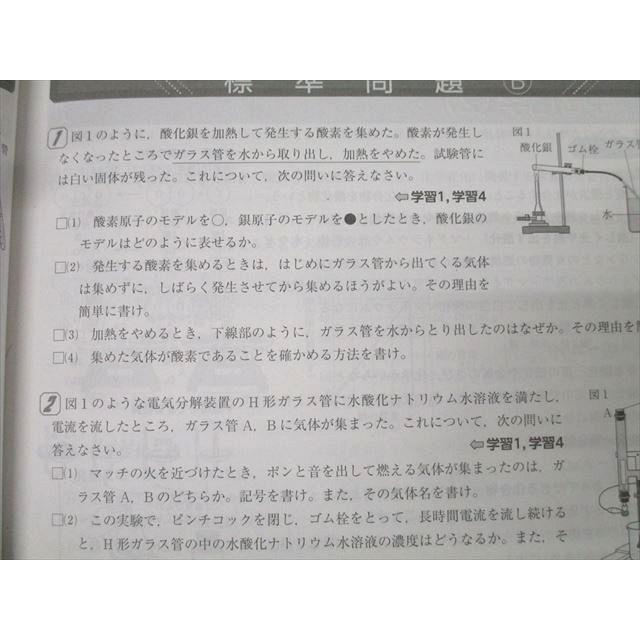 標準問題 B
1 図1のように，酸化銀を加熱して発生する酸素を集めた。酸素が発生し
なくなったところでガラス管を水から取り出し，加熱をやめた。試験管に
は白い固体が残った。これについて，次の問いに答えなさい。
⇦学習1，学習4
□(1) 酸素原子のモデルを○，銀原子のモデルを●としたとき，酸化銀の
モデルはどのように表せるか。
□(2) 発生する酸素を集めるときは，はじめにガラス管から出てくる気体
は集めずに，しばらく発生させてから集めるほうがよい。その理由を
簡単に書け。
□(3) 加熱をやめるとき，下線部のように，ガラス管を水からとり出したのはなぜか。その理由を
□(4) 集めた気体が酸素であることを確かめる方法を書け。
図1
酸化銀
ゴム栓
ガラス
水
2 図1のような電気分解装置のH形ガラス管に水酸化ナトリウム水溶液を満たし，
電流を流したところ，ガラス管A，Bに気体が集まった。これについて，次の問いに
答えなさい。
⇦学習1，学習4
□(1) マッチの火を近づけたとき，ポンと音を出して燃える気体が集まったのは，ガ
ラス管A，Bのどちらか。記号を書け。また，その気体名を書け。
□(2) この実験で，ピンチコックを閉じ，ゴム栓をとって，長時間電流を流し続ける
と，H形ガラス管の中の水酸化ナトリウム水溶液の濃度はどうなるか。また，そ
図1
A